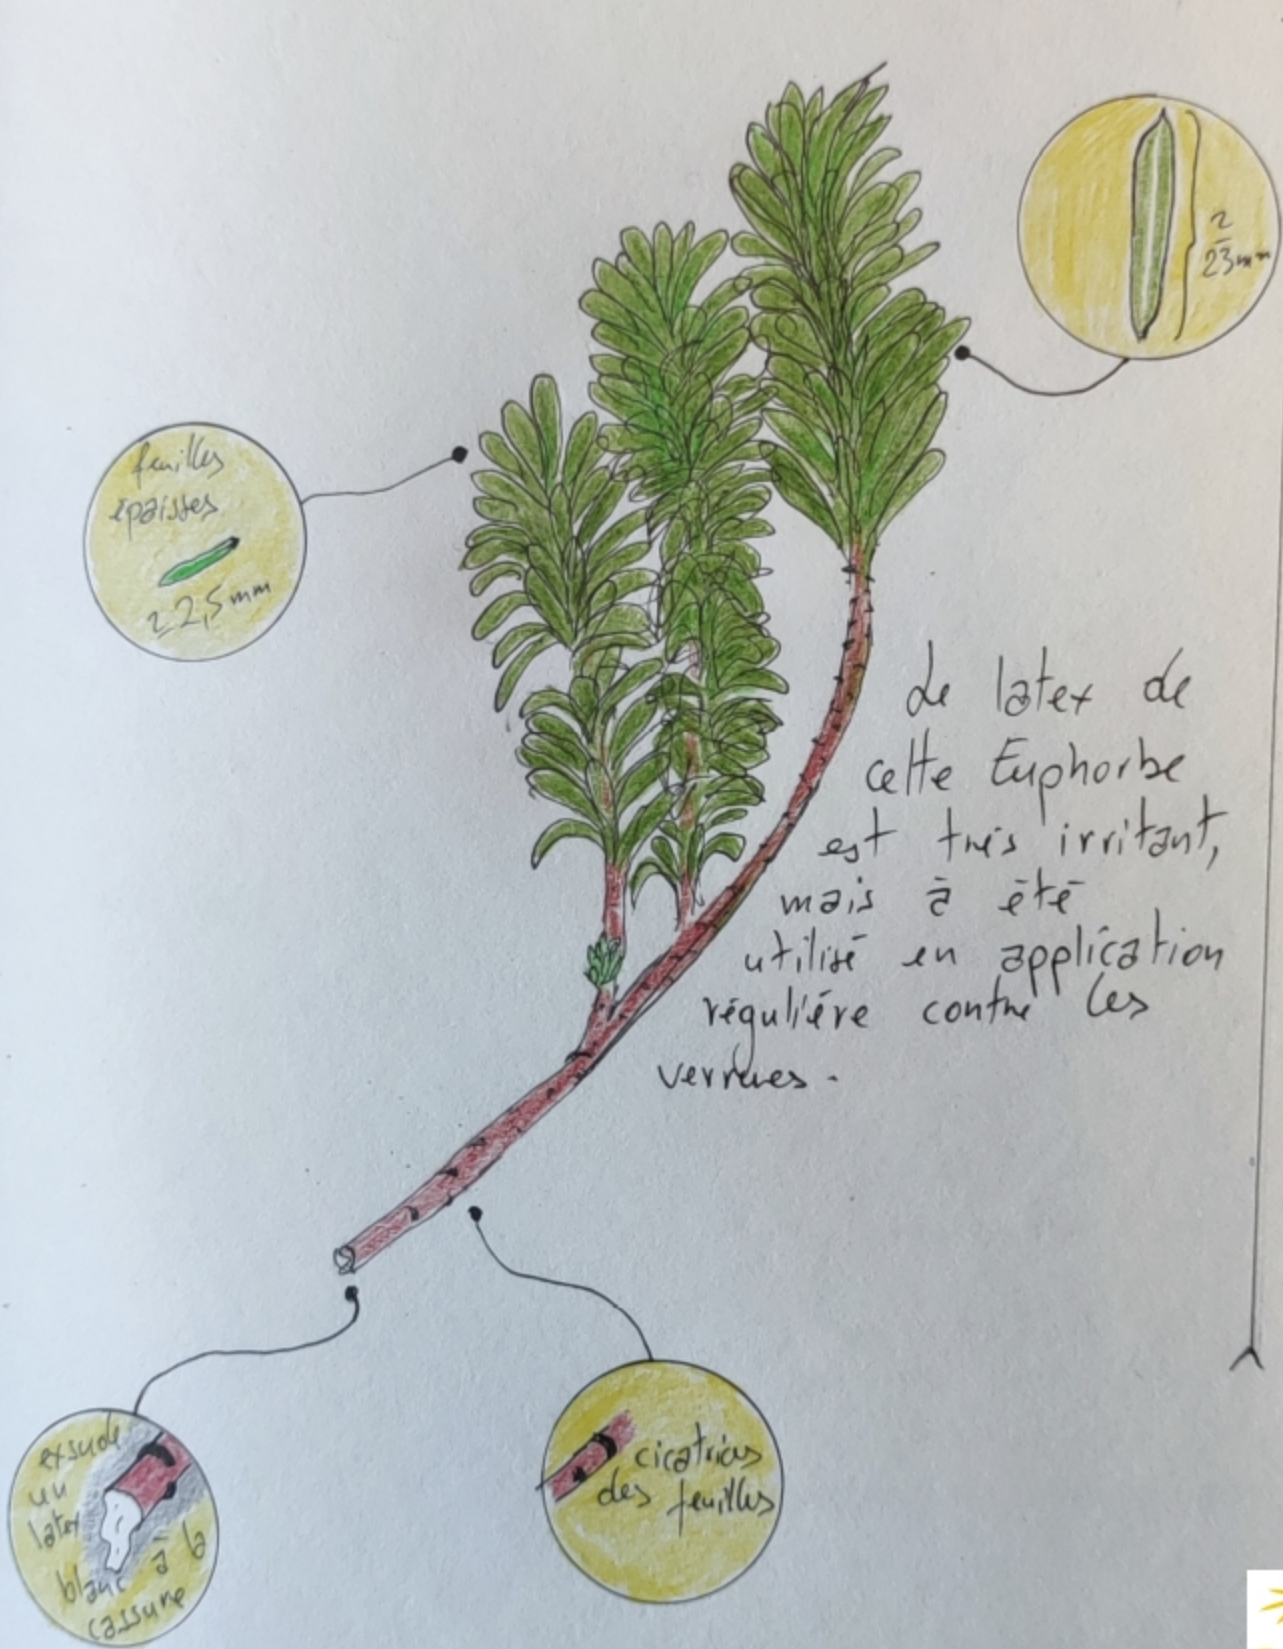 feuilles
épaisses
≃ 2,5 mm
≃
23 mm
Le latex de
cette Euphorbe
est très irritant,
mais à été
utilisé en application
régulière contre les
verrues.
exsude
un
latex
blanc à la
cassure
cicatrices
des feuilles